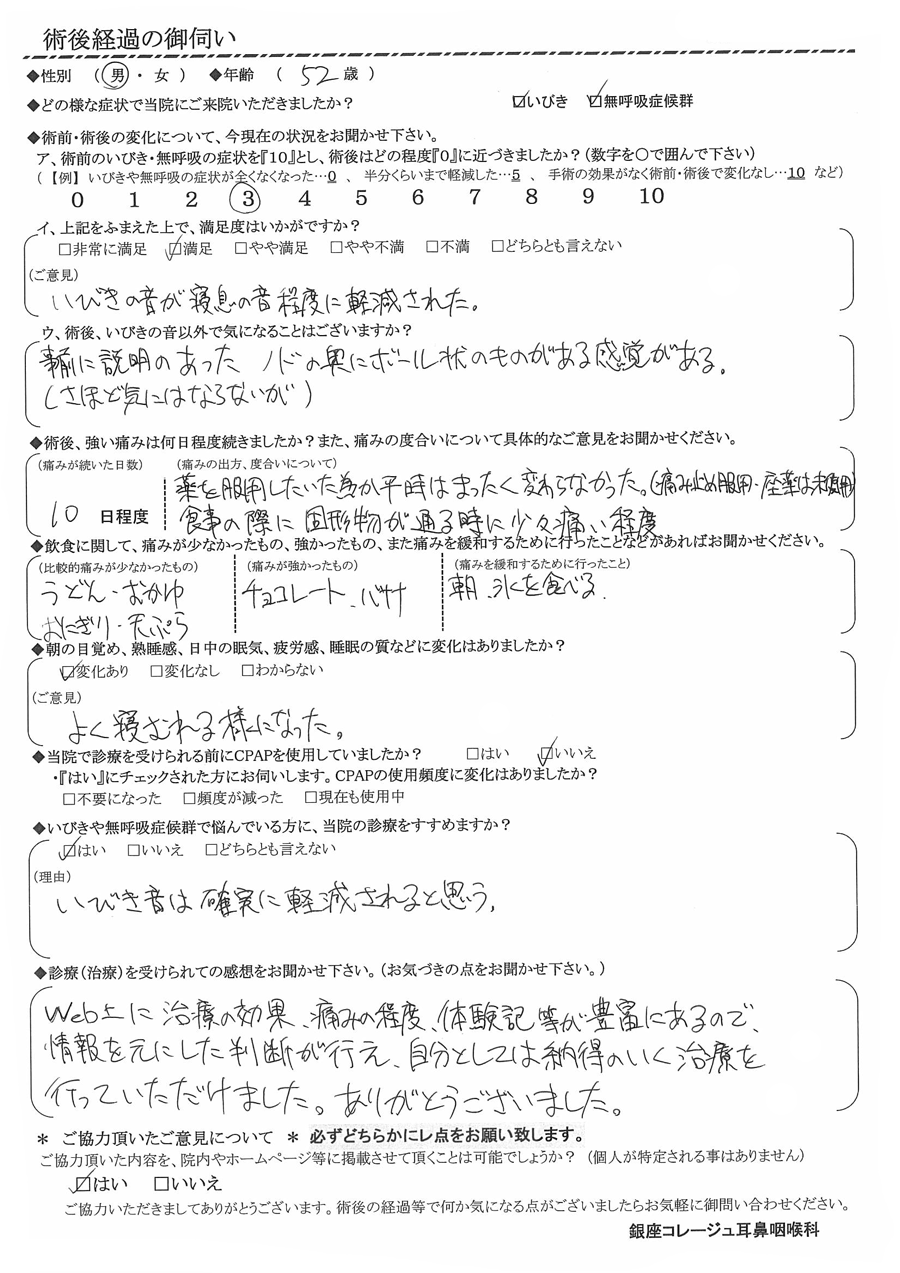 術後経過の御伺い
◆性別 （ 男 ・ 女 ） ◆年齢 （ 52 歳 ）
◆どの様な症状で当院にご来院いただきましたか？ ☑いびき ☑無呼吸症候群
◆術前・術後の変化について、今現在の状況をお聞かせ下さい。
ア、術前のいびき・無呼吸の症状を『10』とし、術後はどの程度『0』に近づきましたか？（数字を○で囲んで下さい）
（【例】 いびきや無呼吸の症状が全くなくなった…0 、 半分くらいまで軽減した…5 、 手術の効果がなく術前・術後で変化なし…10 など）
0 1 2 3 4 5 6 7 8 9 10
イ、上記をふまえた上で、満足度はいかがですか？
□非常に満足 ☑満足 □やや満足 □やや不満 □不満 □どちらとも言えない
（ご意見）
いびきの音が寝息の音程度に軽減された。
ウ、術後、いびきの音以外で気になることはございますか？
事前に説明のあった ノドの奥にボール状のものがある感覚がある。
（さほど気にはならないが）
◆術後、強い痛みは何日程度続きましたか？また、痛みの度合いについて具体的なご意見をお聞かせください。
（痛みが続いた日数） （痛みの出方、度合いについて）
薬を服用していた為か平時はまったく変わらなかった。（痛み止め服用・座薬は未使用）
10 日程度 食事の際に固形物が通る時に少々痛い程度
◆飲食に関して、痛みが少なかったもの、強かったもの、また痛みを緩和するために行ったことなどがあればお聞かせください。
（比較的痛みが少なかったもの） （痛みが強かったもの） （痛みを緩和するために行ったこと）
うどん・おかゆ チョコレート、バナナ 朝、氷を食べる.
おにぎり・天ぷら
◆朝の目覚め、熟睡感、日中の眠気、疲労感、睡眠の質などに変化はありましたか？
☑変化あり □変化なし □わからない
（ご意見）
よく寝むれる様になった。
◆当院で診療を受けられる前にCPAPを使用していましたか？ □はい ☑いいえ
・『はい』にチェックされた方にお伺いします。CPAPの使用頻度に変化はありましたか？
□不要になった □頻度が減った □現在も使用中
◆いびきや無呼吸症候群で悩んでいる方に、当院の診療をすすめますか？
☑はい □いいえ □どちらとも言えない
（理由）
いびき音は確実に軽減されると思う。
◆診療（治療）を受けられての感想をお聞かせ下さい。（お気づきの点をお聞かせ下さい。）
Web上に治療の効果、痛みの程度、体験記等が豊富にあるので、
情報を元にした判断が行え、自分としては納得のいく治療を
行っていただけました。ありがとうございました。
＊ ご協力頂いたご意見について ＊ 必ずどちらかにレ点をお願い致します。
ご協力頂いた内容を、院内やホームページ等に掲載させて頂くことは可能でしょうか？ （個人が特定される事はありません）
☑はい □いいえ
ご協力いただきましてありがとうございます。術後の経過等で何か気になる点がございましたらお気軽に御問い合わせください。
銀座コレージュ耳鼻咽喉科